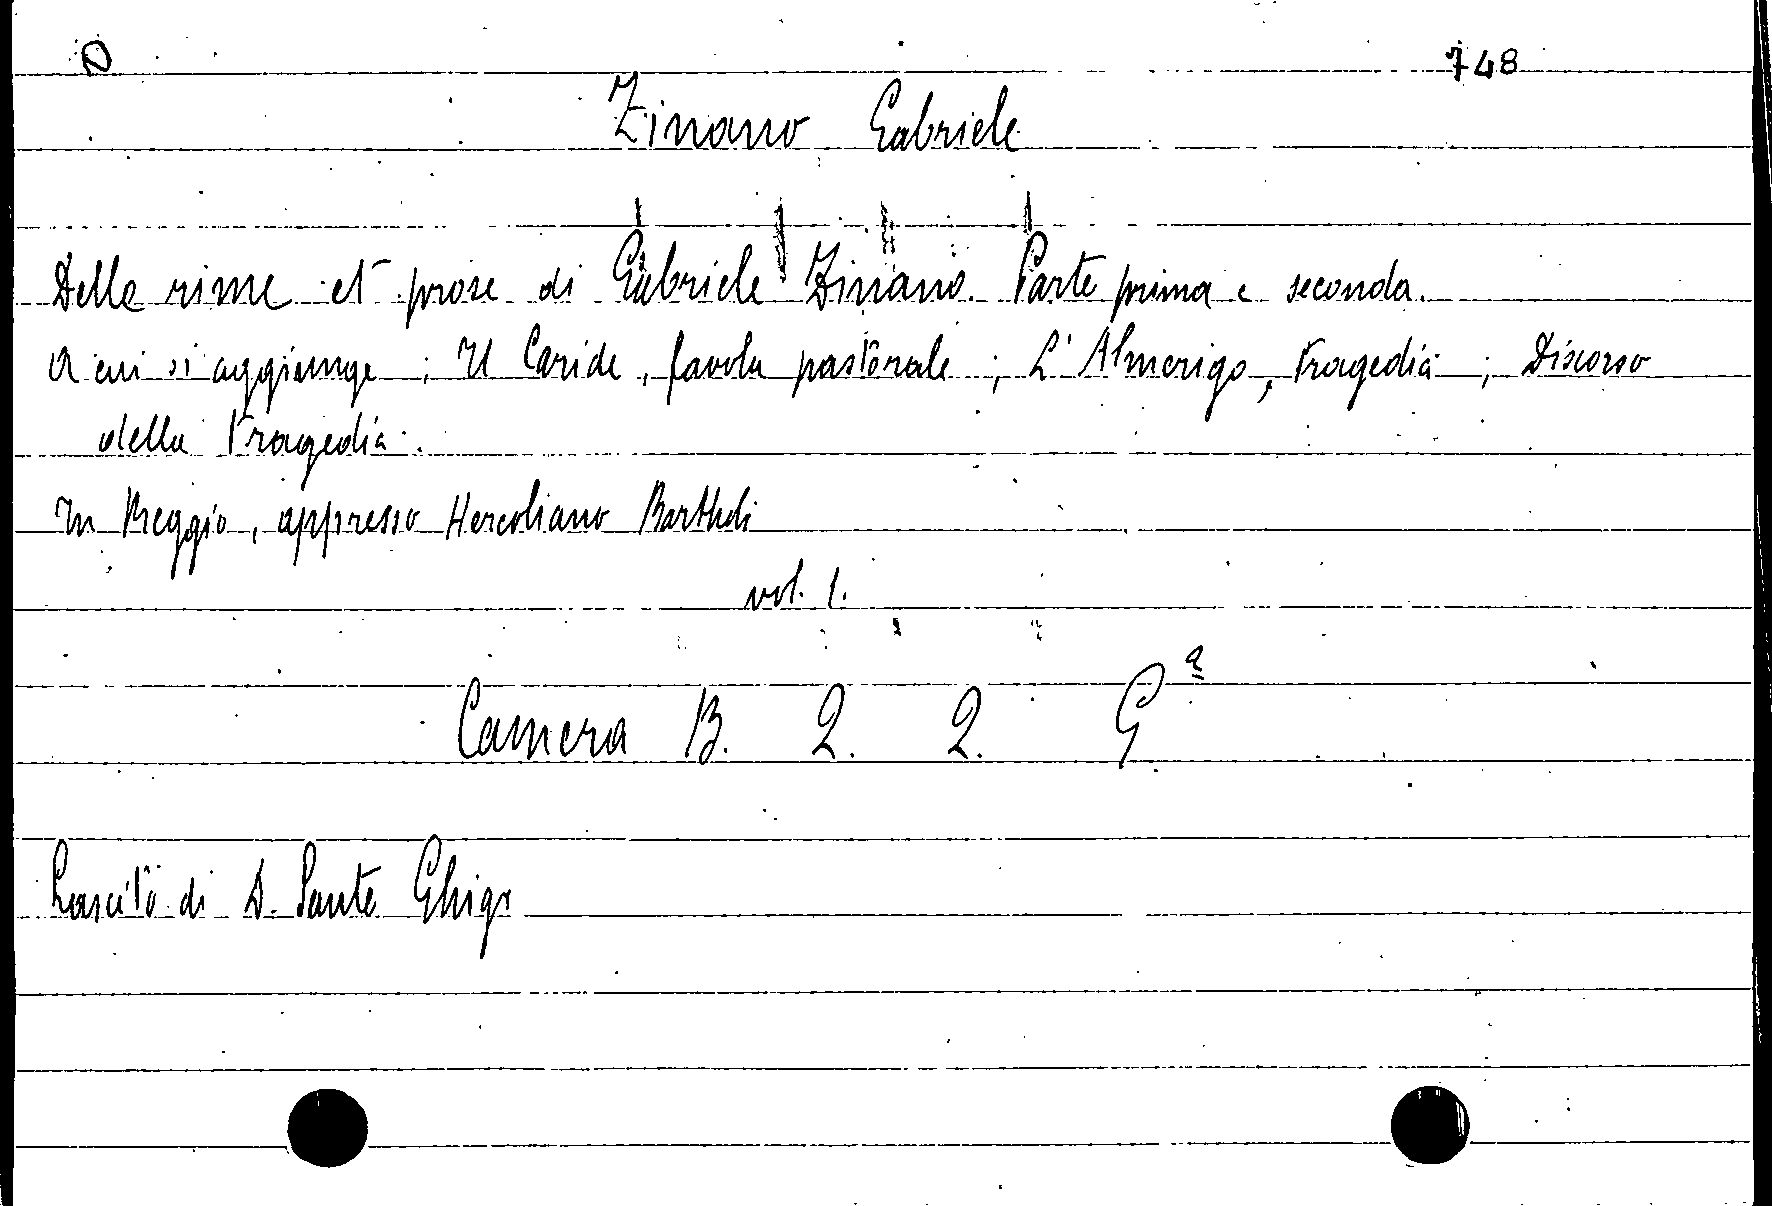 D 748
Zinano Gabriele
Delle rime et prose di Gabriele Zinano. Parte prima e seconda.
A cui si aggiunge : Il Caride, favola pastorale ; L'Almerigo, tragedia ; Discorso
della tragedia.
In Reggio, appresso Hercoliano Bartholi
vol. 1.
Camera B. 2. 2. G a
Lascito di D. Sante Ghigi